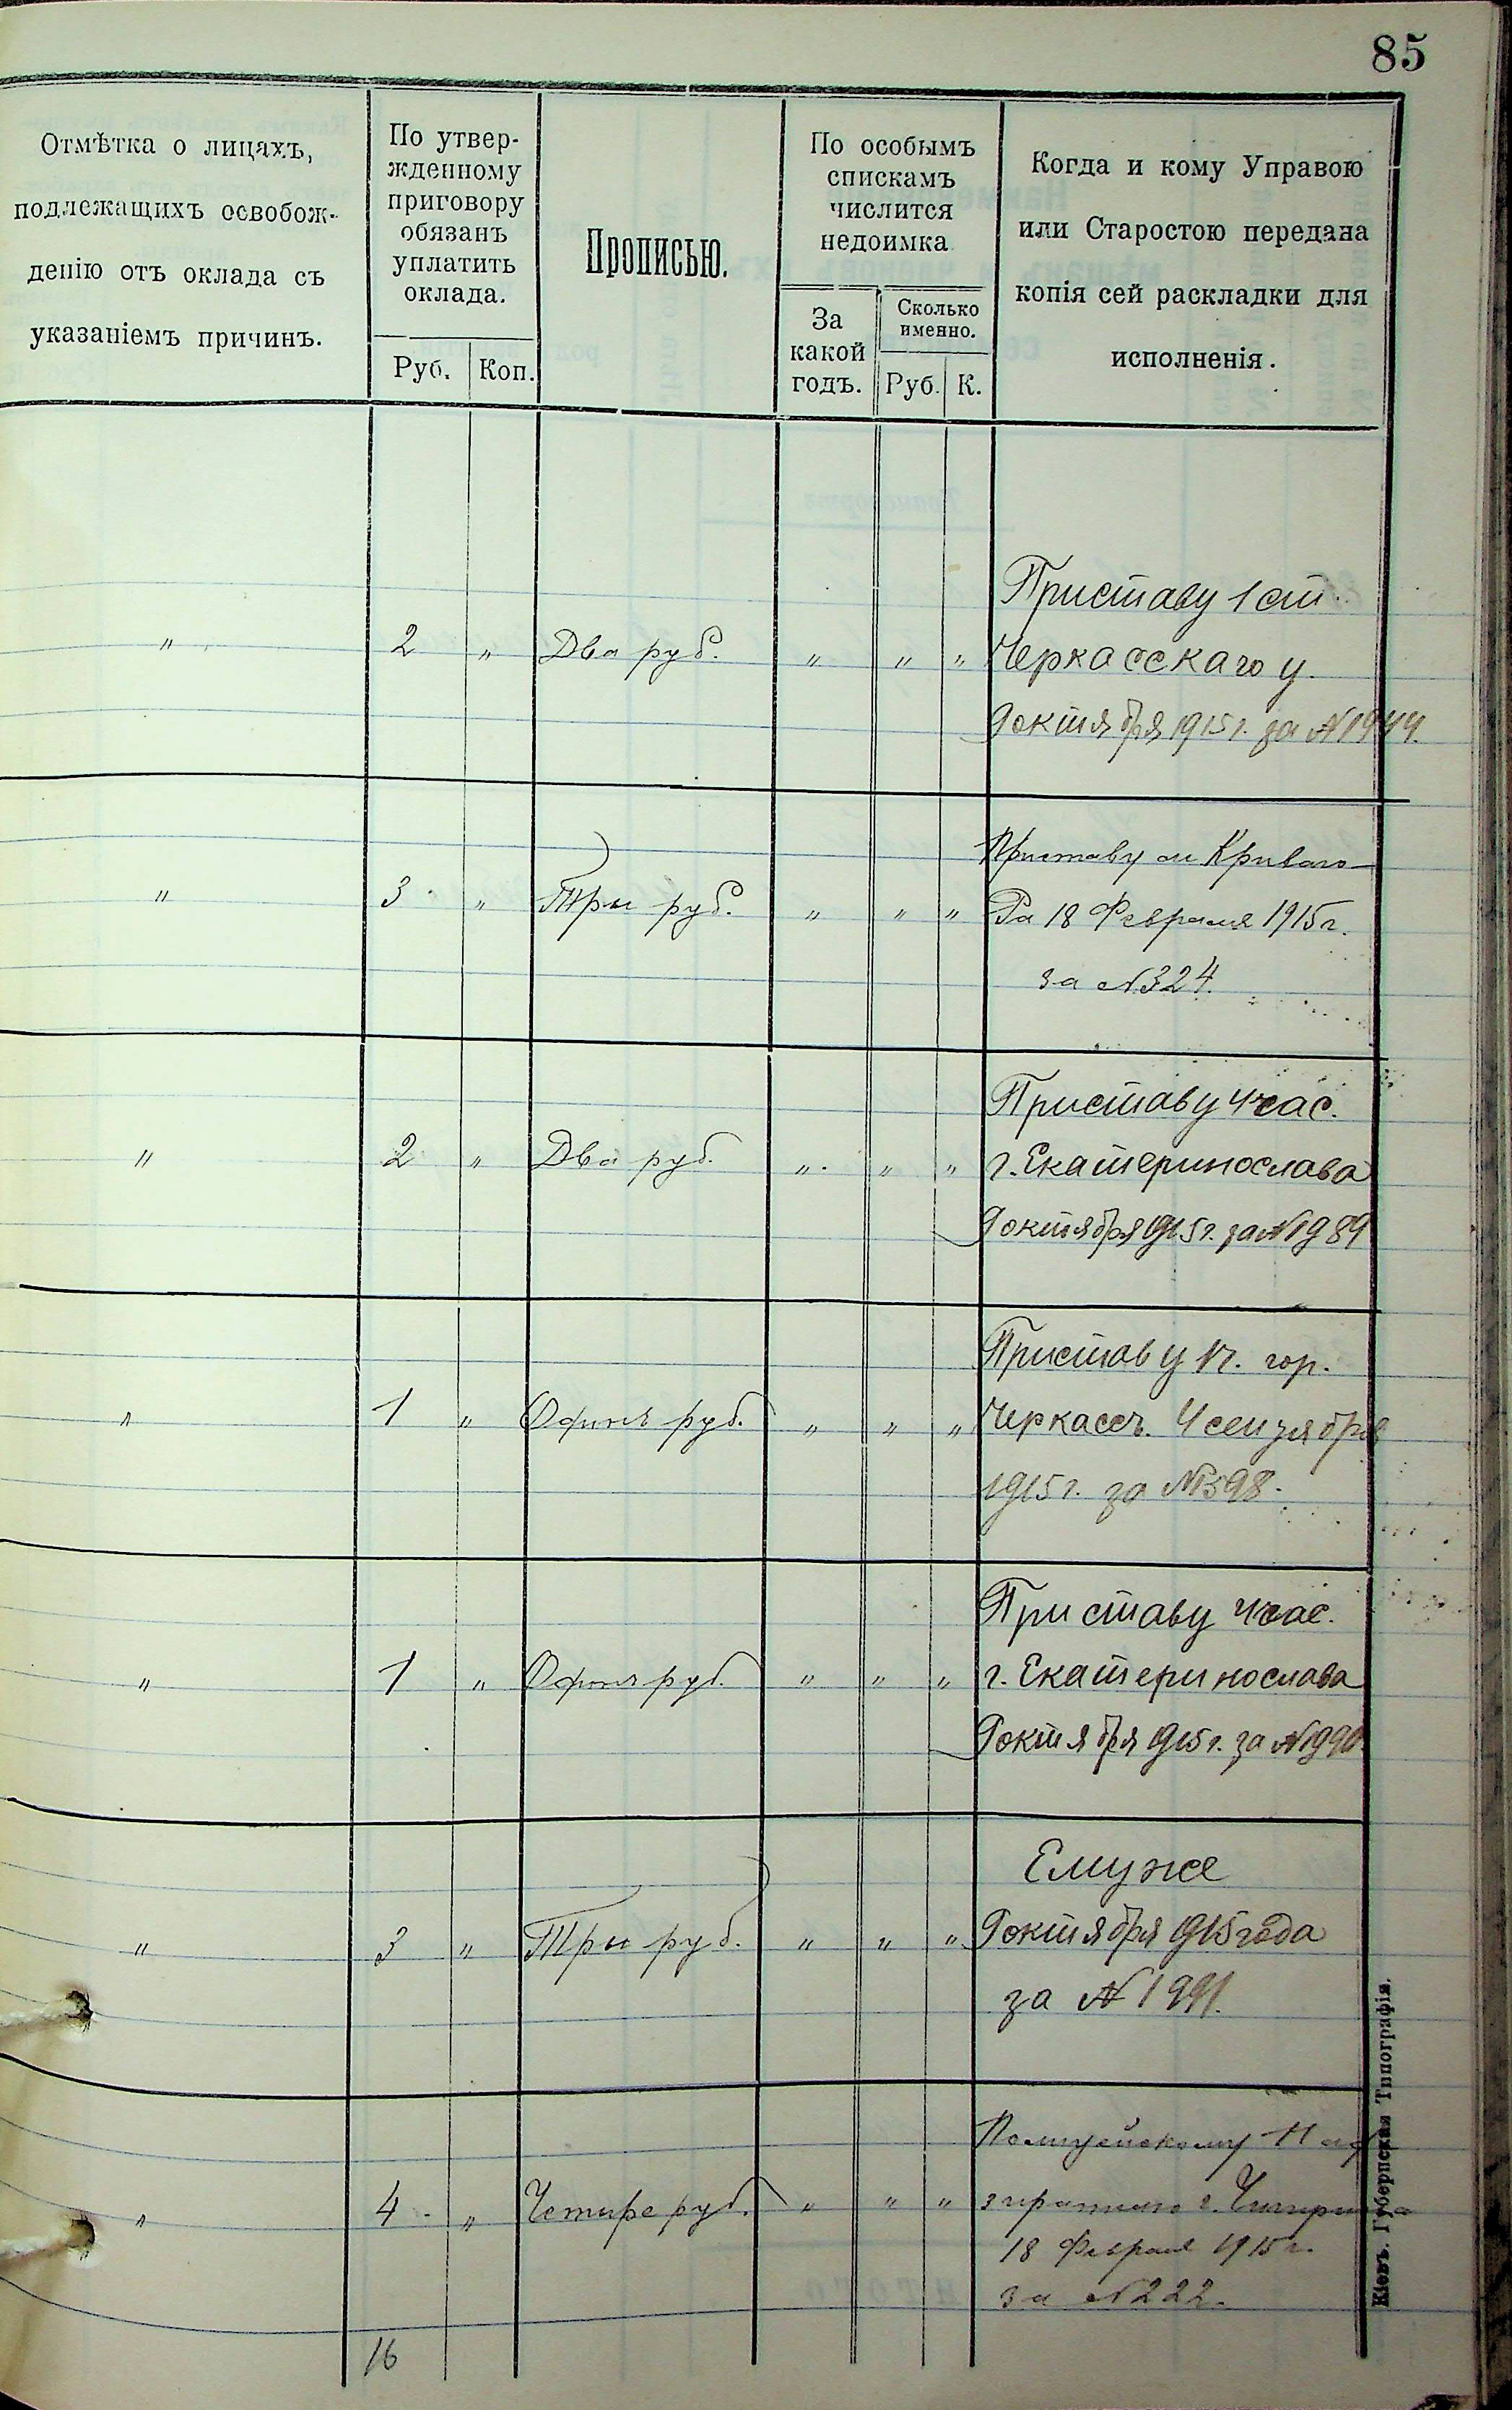 85
Отмѣтка о лицахъ,
подлежащихъ освобож-
денію отъ оклада съ
указаніемъ причинъ.
По утвер-
жденному
приговору
обязанъ
уплатить
оклада.
Руб.
Коп.
Прописью.
По особымъ
спискамъ
числится
недоимка
За
какой
годъ.
Сколько
именно.
Руб.
К.
Когда и кому Управою
или Старостою передана
копія сей раскладки для
исполненія.
Приставу 1 ст.
" 2 " Два руб. " " " Черкасскаго у.
9 октября 1915 г. за № 1944.
Приставу Криваго
" 3 " Три руб. " " " Рa 18 Февраля 1915 г.
за № 324.
Приставу 4 час.
" 2 " Два руб. " " " г. Екатеринослава
9 октября 1915 г. за № 1989
Приставу гор.
" 1 " Одинъ руб. " " " Черкассъ. 4 сентября
1915 г. за № 1598.
Приставу 4 час.
" 1 " Одинъ руб. " " " г. Екатеринослава
9 октября 1915 г. за № 1990
Ему же
" 3 " Три руб. " " " 9 октября 1915 года
за № 1991.
Полицейскому Над
" 4 " Четыре руб. " " " зирателю г. Чигирина
18 Февраля 1915 г.
за № 222.
16
Кіевъ. Губернская Типографія.